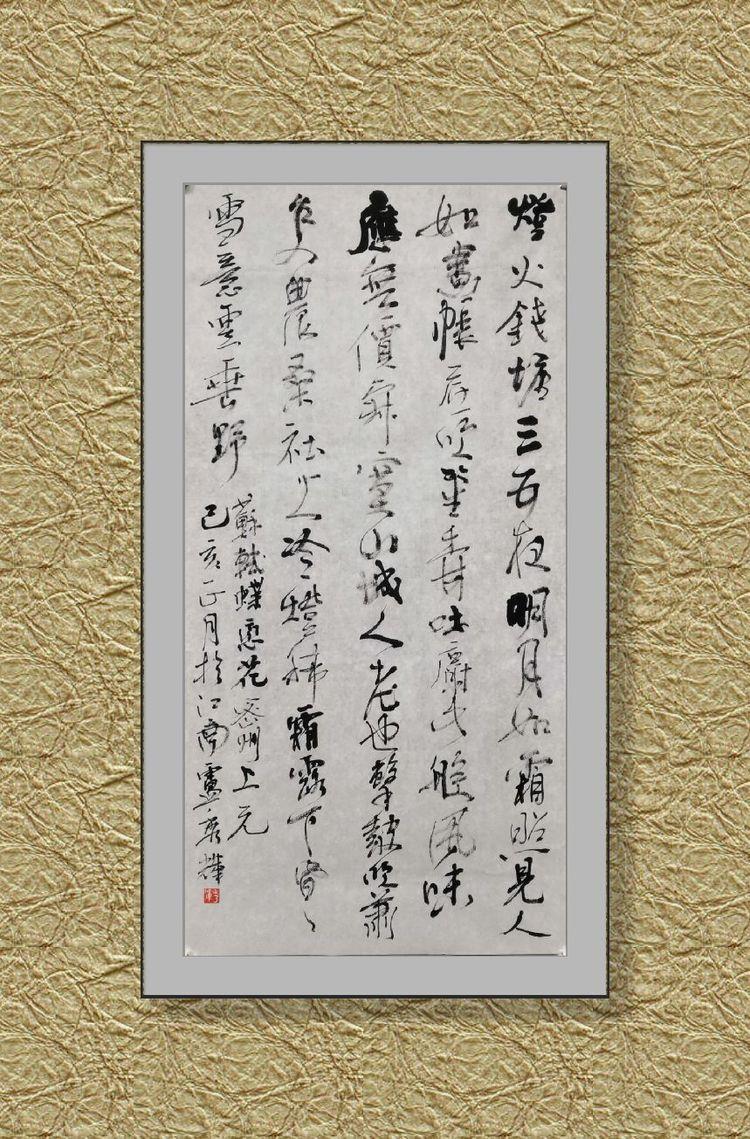 燈火錢塘三五夜明月如霜照見人
如畫帳底吹笙香吐麝此般風味
應無價寂寞山城人老也擊鼓吹簫
乍入農桑社火冷燈稀霜露下昏〻
雪意雲垂野
蘇軾蝶戀花密州上元
己亥正月於江南盧